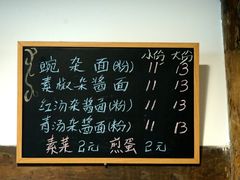 小份 大份
豌杂面(粉) 11 13
素椒杂酱面 11 13
红汤杂酱面(粉) 11 13
青汤杂酱面(粉) 11 13
素菜2元 煎蛋2元